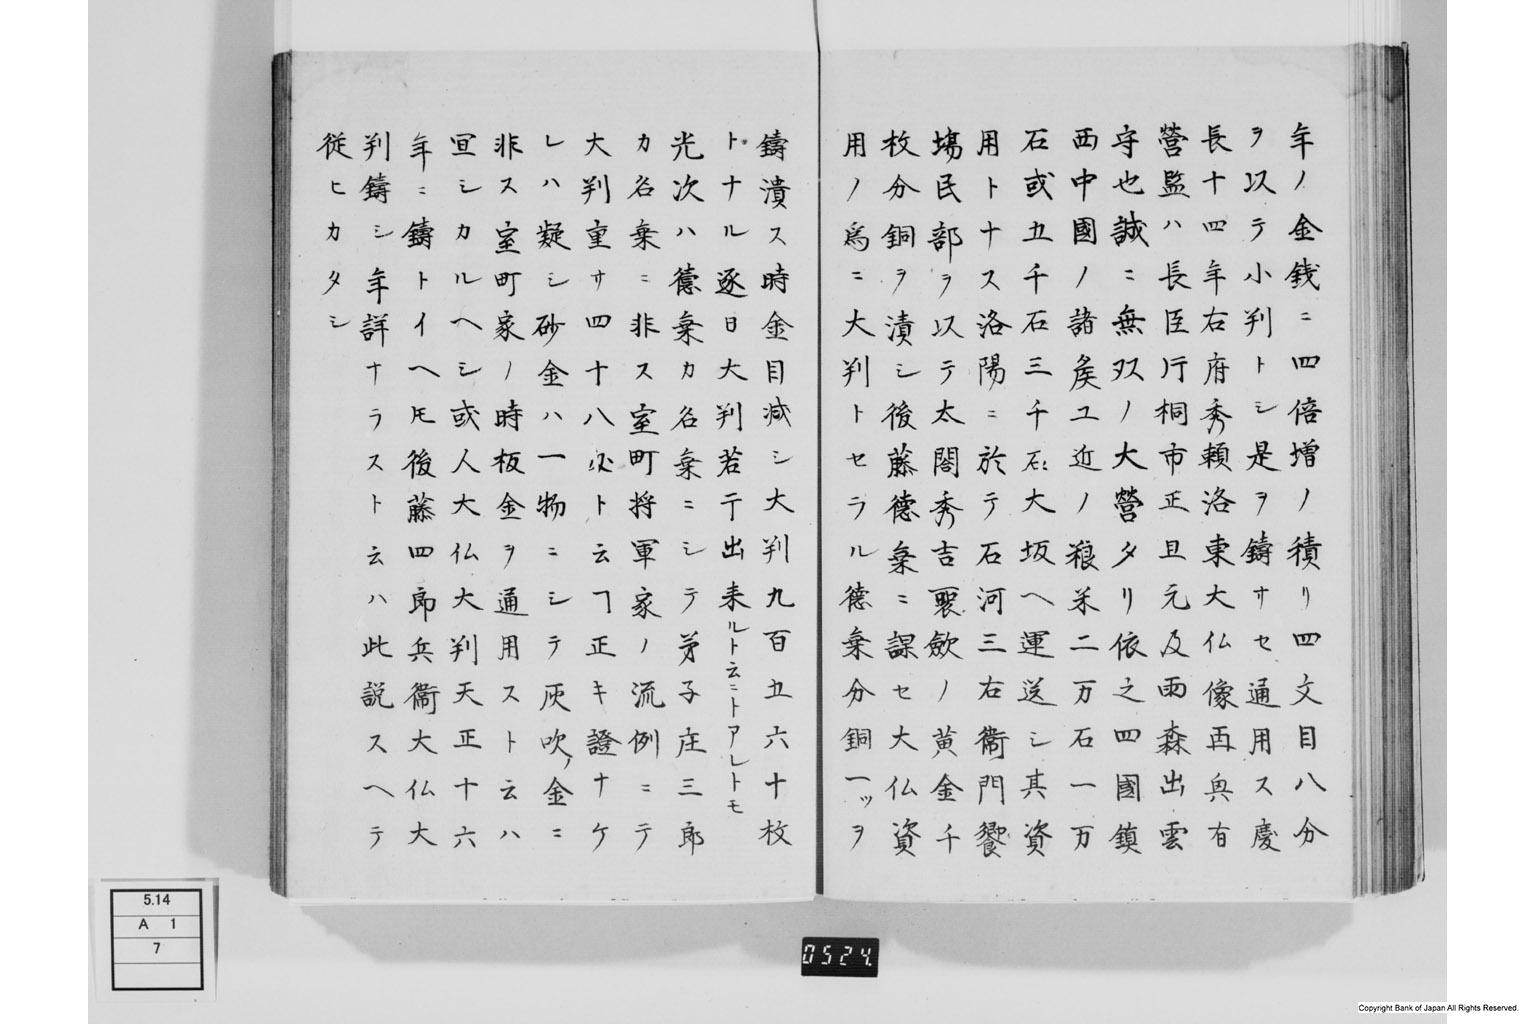 年ノ金銭ニ四倍増ノ積リ四文目八分
ヲ以テ小判トシ是ヲ鑄サセ通用ス慶
長十四年右府秀頼洛東大仏像再興有
營監ハ長臣片桐市正且元及雨森出雲
守也誠ニ無双ノ大營タリ依之四國鎮
西中國ノ諸矦ユ近ノ粮米二万石一万
石或五千石三千石大坂ヘ運送シ其資
用トナス洛陽ニ於テ石河三右衞門饗
塲民部ヲ以テ太閤秀吉褁歛ノ黄金千
枚分銅ヲ潰シ後藤德乗ニ課セ大仏資
用ノ爲ニ大判トセラル德乗分銅一ッヲ
鑄潰ス時金目减シ大判九百五六十枚
トナル逐日大判若干出来ルト云ニトアレトモ
光次ハ德乗カ名乗ニシテ弟子庄三郎
カ名乗ニ非ス室町将軍家ノ流例ニテ
大判重サ四十八匁ト云ヿ正キ證ナケ
レハ疑シ砂金ハ一物ニシテ灰吹ノ金ニ
非ス室町家ノ時板金ヲ通用ストハ云ハ
宣シカルヘシ或人大仏大判天正十六
年ニ鑄トイヘ𪜈後藤四郎兵衞大仏大
判鑄シ年詳ナラスト云ハ此説スヘテ
従ヒカタシ
5.14
A 1
7
0524
Copyright Bank of Japan All Rights Reserved.